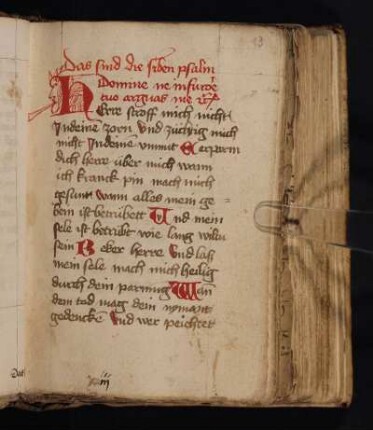 Das sind die siben psalm
Domine ne in furore
tuo arguas me
Herre stroff mich nicht
Jn deine zorn vnd zuchtig mich
nicht Jn deine vnmut Erparm
dich herre über mich wann
ich kranck pin mach mich
gesunt wann alles mein ge=
bein ist betrubett Vnd mein
sele ist betrubt wie lang wiltu
sein Beker herre vnd lass
mein sele mach mich heilig
durch dein parmung Wan
dem tod mag dein nymant
gedencke vnd wer peichtet